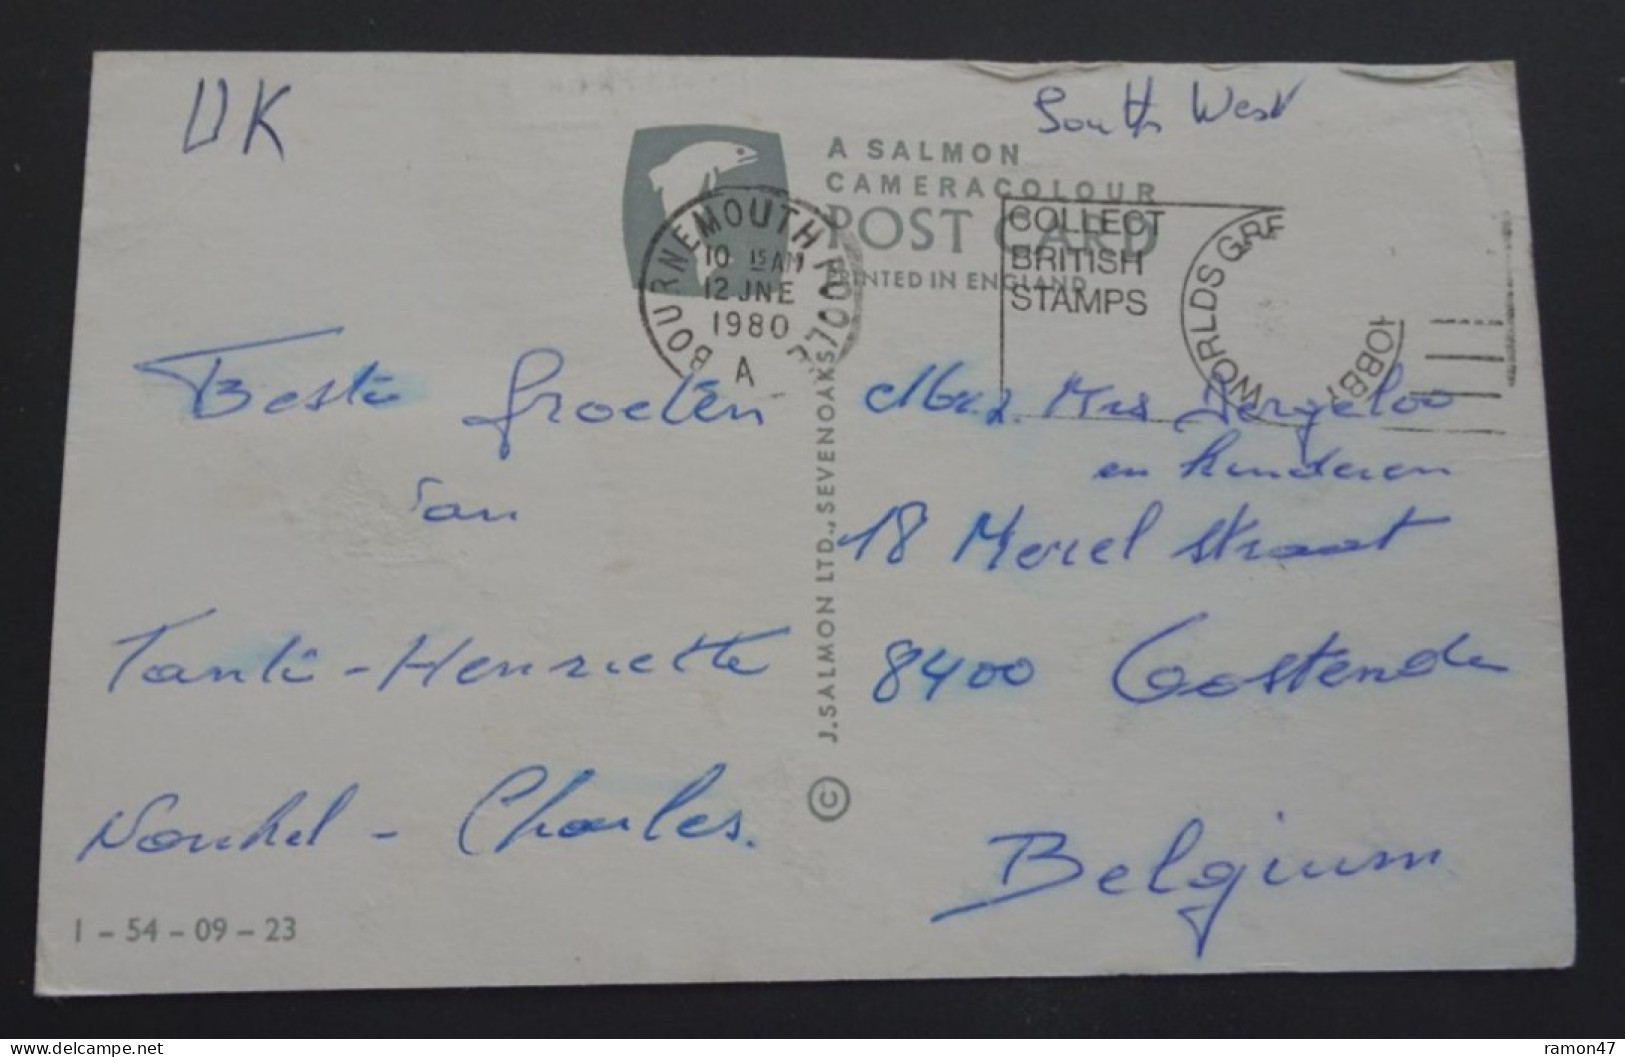 UK
South West
A SALMON
CAMERACOLOUR
POST CARD
PRINTED IN ENGLAND
BOURNEMOUTH POOLE
10 15 AM
12 JNE
1980
A
COLLECT
BRITISH
STAMPS
WORLDS GRE
HOBBY
Beste Groeten
van
Tante - Henriette
Nonkel - Charles.
1 - 54 - 09 - 23
© J. SALMON LTD., SEVENOAKS
Mr & Mrs
en kinderen
18 Merel straat
8400 Oostende
Belgium
ramon47